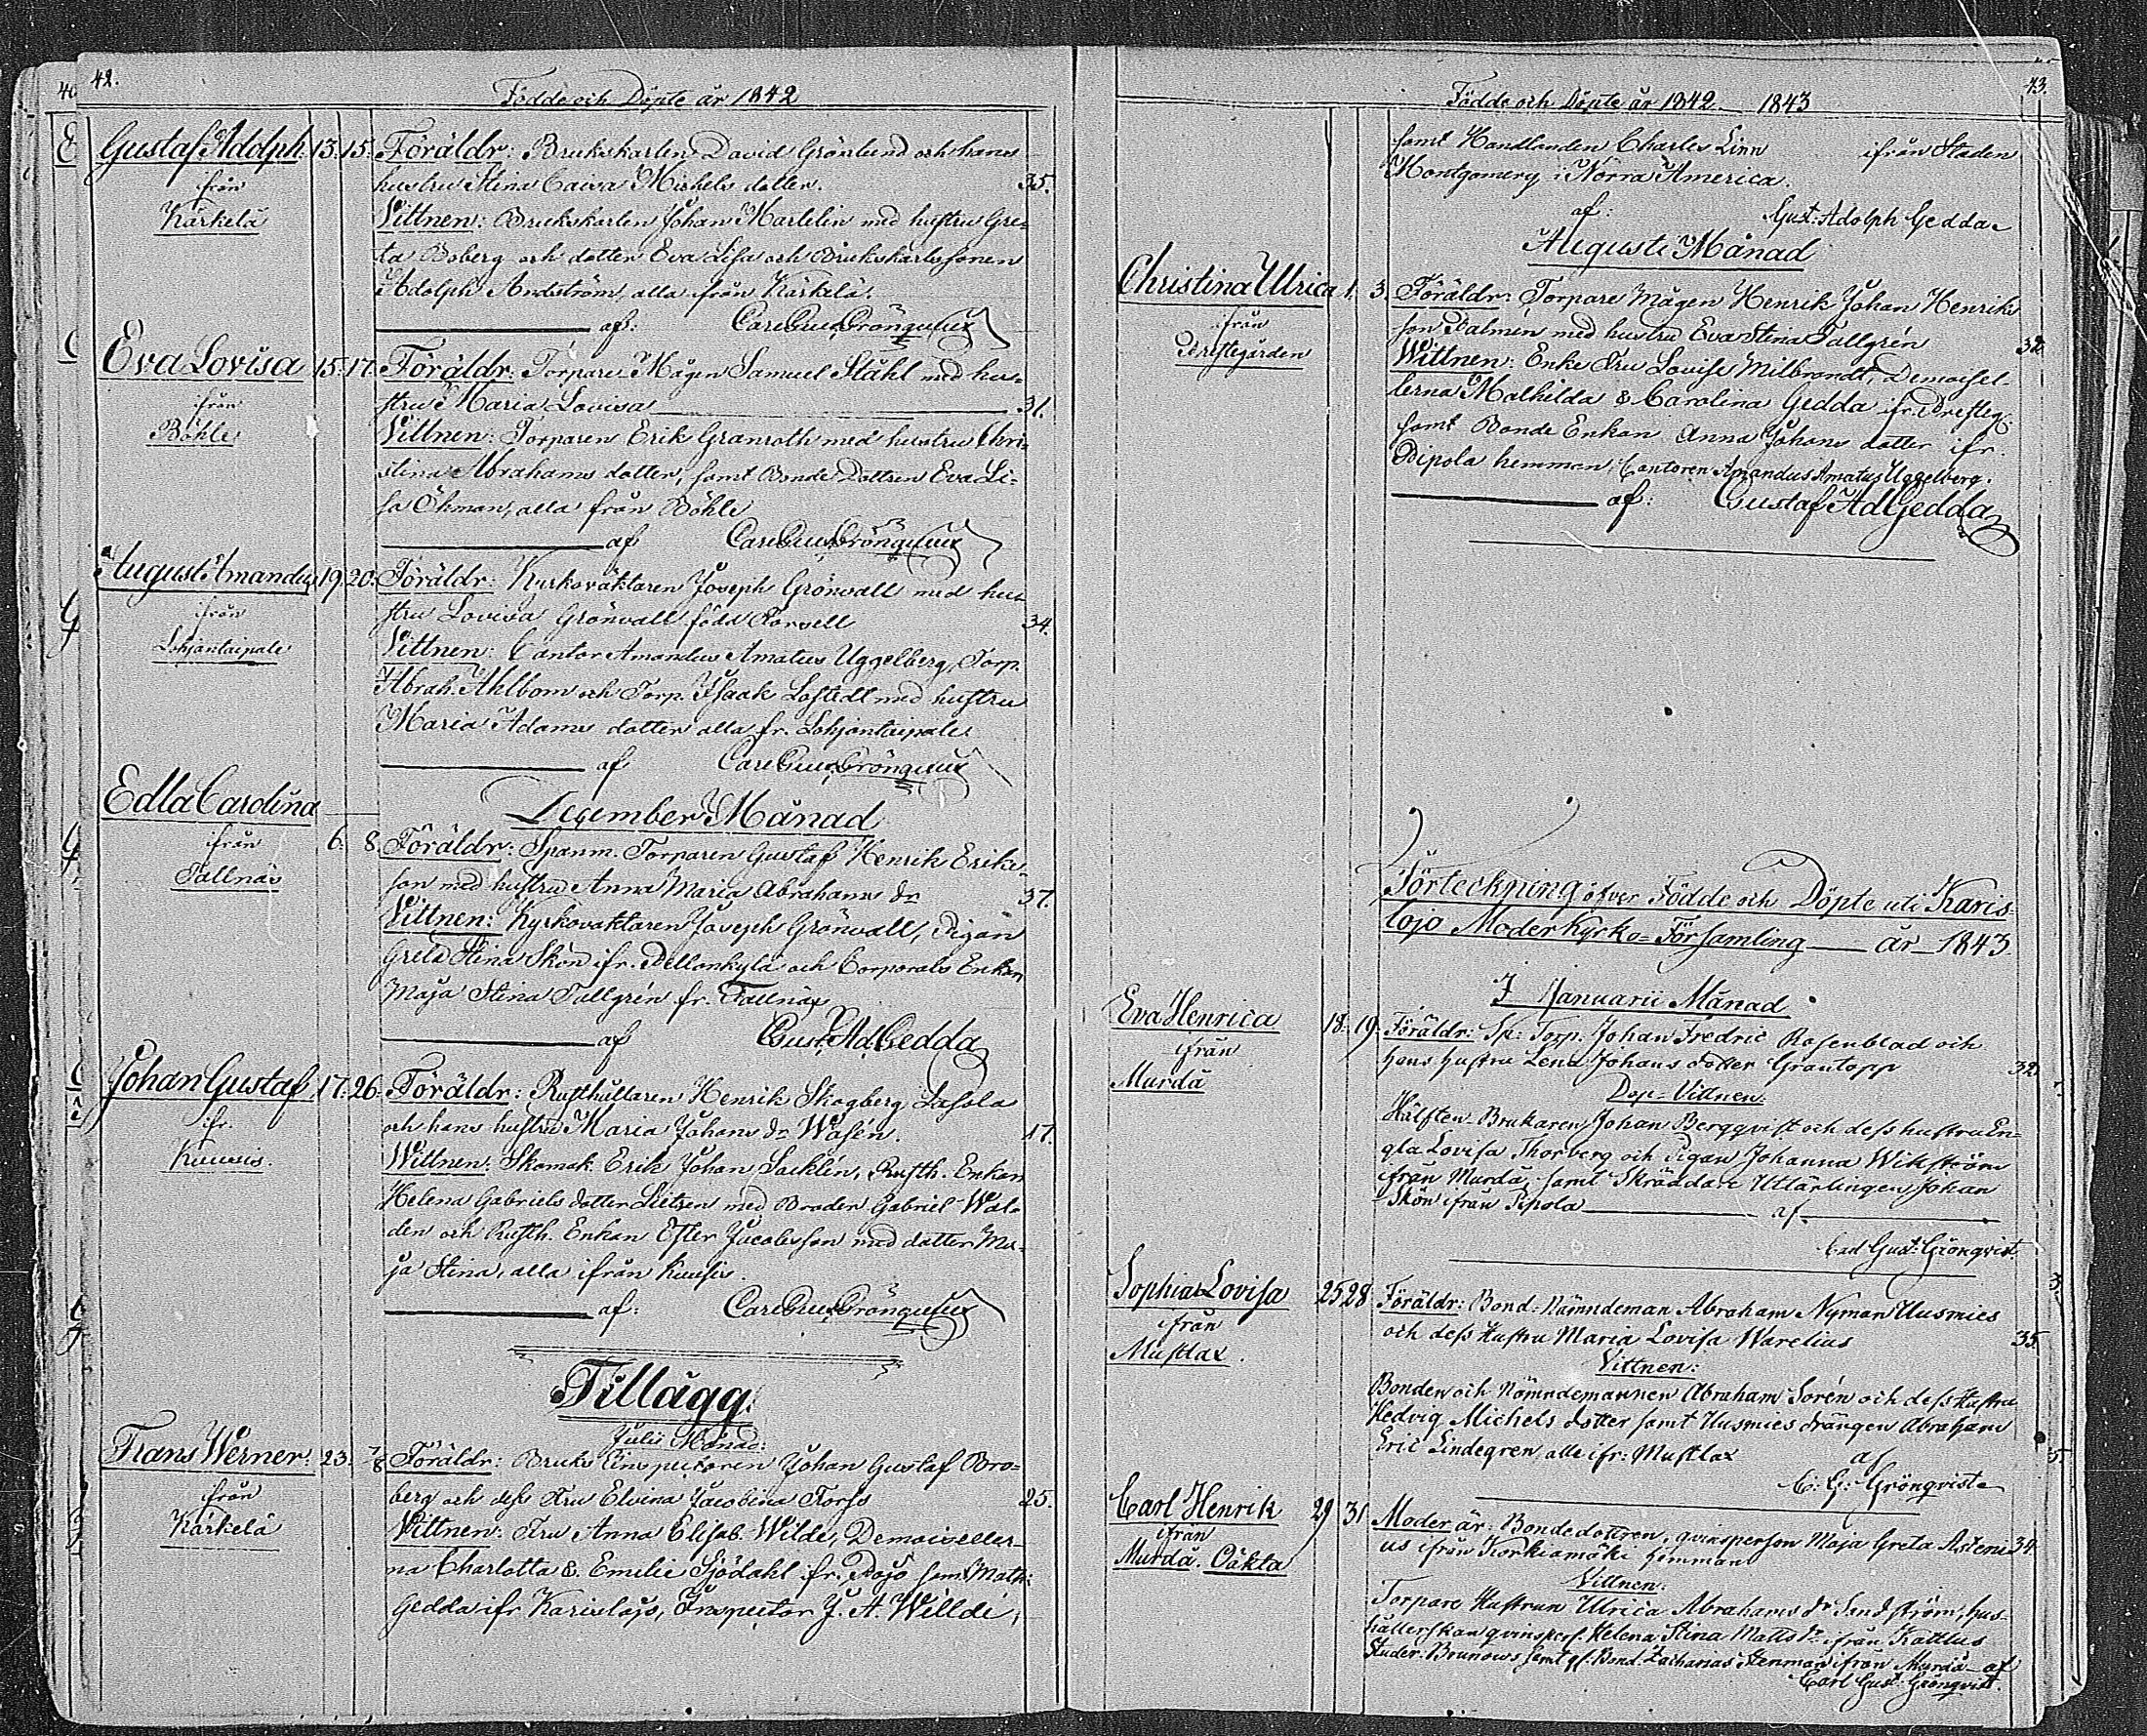 42.
Födde och Döpte år 1842
Gustaf Adolph. 13. 15. Föräldr: Brukskarlen David Grönlund och hans
ifrån hustru Stina Caisa Michels dotter. 35.
Kärkelä Vittnen: Brukskarlen Johan Martelin med hustru Gre-
ta Boberg och dotter Eva Lisa och Brukskarlssonen
Adolph Andström, alla ifrån Kärkelä.
af: Carl Gust. Grönqvist
Eva Lovisa 15. 17. Föräldr: Torpare Mågen Samuel Ståhl med hus-
ifrån stru Maria Lovisa 31.
Böhle Vittnen: Torparen Erik Granroth med hustru Chri-
stina Abrahams dotter, samt Bonde Dottren Eva Li-
sa Öhman, alla från Böhle
af Carl Gust. Grönqvist
August Amandus 19. 20. Föräldr: Kyrkovaktaren Joseph Grönvall med hu-
ifrån stru Lovisa Grönvall född Forsell 34.
Lohjantaipale Vittnen: Cantor Amandus Amatus Uggelberg, Torp.
Abrah. Ahlbom och Torp. Isaak Lostedt med hustru
Maria Adams dotter alla fr. Lohjantaipale
af Carl Gust. Grönqvist
Edla Carolina
December Månad
ifrån 6. 8. Föräldr: Spanm. Torparen Gustaf Henrik Eriks-
Tallnäs son med hustru Anna Maria Abrahams dr 37.
Vittnen: Kyrkovaktaren Joseph Grönvall, Pigan
Greta Stina Skön ifr. Pellonkylä och Corporals Enkan
Maja Stina Tallgrén fr. Tallnäs
af Gust. Ad. Gedda
Johan Gustaf 17. 26. Föräldr: Rusthållaren Henrik Skogberg Lasola
ifr. och hans hustru Maria Johans dr Wasén. 17.
Kuusis. Wittnen: Skomak. Erik Johan Lacklin, Rusth. Enkan
Helena Gabriels dotter med Broder Gabriel Wal-
den och Rusth. Enkan Ester Jacobsson med dotter Ma-
ja Stina, alla ifrån Kuusis.
af: Carl Gust. Grönqvist
Tillägg.
Julii Månad:
Frans Werner. 23. 7/8 Föräldr: Bruks Inspectoren Johan Gustaf Bro-
ifrån berg och dess Fru Elvina Jacobina Forss 25.
Kärkelä Vittnen: Fru Anna Elisab. Wilde, Demoiseller-
na Charlotta & Emilie Sjödahl ifr. Pojo samt Math:
Gedda ifr Karislojo, Inspector J. A. Willde,
43.
Födde och Döpte år 1842. 1843
samt Handlanden Charles Linn ifrån Staden
Montgomery i Norra America.
af: Gust. Adolph Gedda
Augusti Månad
Christina Ulrica 1. 3. Föräldr: Torpare Mågen Henrik Johan Henriks
ifrån son Palmen med hustru Eva Stina Tallgrén 32.
Prestegården Wittnen: Enke Fru Lovise Milbrandt, Demoisel-
lerna Mathilda & Carolina Gedda ifr. Presteg:
samt Bonde Enkan Anna Johans dotter ifr.
Pipola hemman, Cantoren Amandus Amatus Uggelberg.
af: Gustaf Ad Gedda
Förteckning öfver Födde och Döpte uti Karis-
lojo Moder Kyrko-Församling år 1843.
I Januarii Månad
Eva Henrica 18. 19. Föräldr: Sp: Torp. Johan Fredric Rosenblad och
ifrån hans hustru Lena Johans dotter Grantopp 32.
Murdå Dop-Vittnen:
Hälften Brukaren Johan Bergqvist och dess hustru En-
gla Lovisa Thorberg och Pigan Johanna Wikström
ifrån Murdå, samt Skräddare Uttärlingen Johan
Skön ifrån Pipola af
Carl Gust: Grönqvist.
Sophia Lovisa 25 28. Föräldr: Bond. Nämndeman Abraham Nyman Uusmies
ifrån och dess Hustru Maria Lovisa Warelius 35.
Mustlax. Vittnen:
Bonden och Nämndemannen Abraham Sorén och dess Hustru
Hedvig Michels dotter samt Uusmies drängen Abraham
Eric Lindegren, alla ifr: Mustlax
af
C: G: Grönqvist
Carl Henrik 29 31 Moder är: Bondedottren, qvinsperson Maja Greta Asteni- 34.
ifrån us ifrån Korkiamäki hemman
Murdå. Oäkta Vittnen:
Torpare Hustrun Ulrica Abrahams dr Sandström, hus-
hållerskan qvinspers. Helena Stina Matts dr ifrån Kattlus
Studer. Brunows samt gl. Bond. Zacharias Stenman ifrån Murdå af
Carl Gust: Grönqvist.